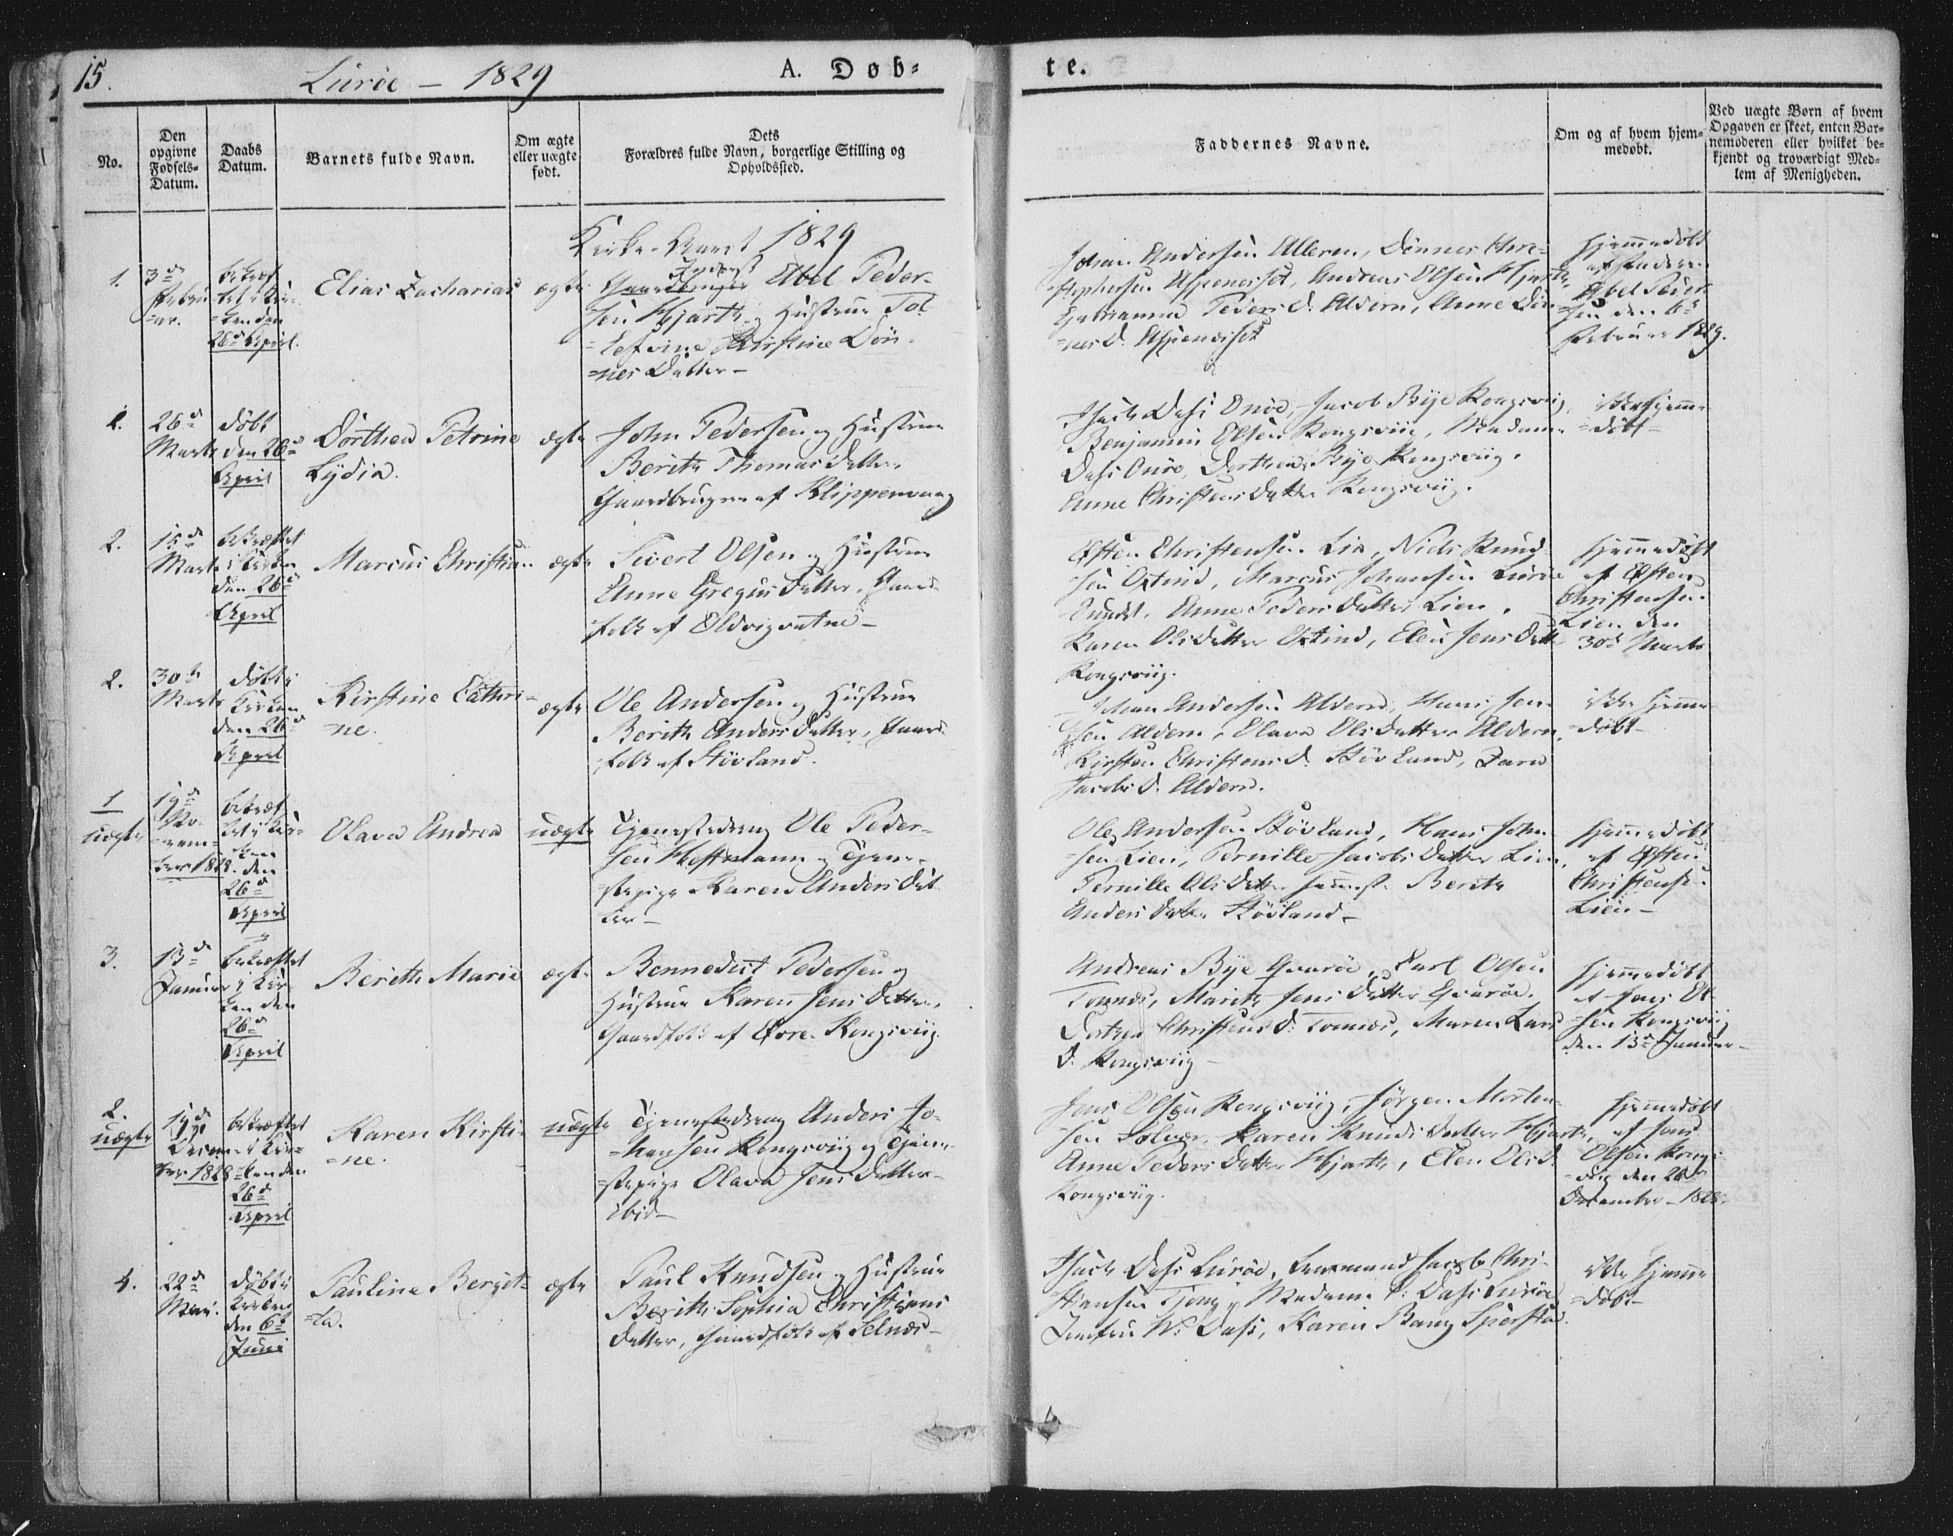 15.
Lurøe - 1829
A. Døb-
te.
No.
Den
opgivne
Fødsels-
Datum.
Daabs
Datum.
Barnets fulde Navn.
Om ægte
eller uægte
født.
Dets
Forældres fulde Navn, borgerlige Stilling og
Opholdssted.
Faddernes Navne.
Om og af hvem hjem-
medøbt.
Ved uægte Børn af hvem
Opgaven er skeet, enten Bar-
nemoderen eller hvilket be-
kjendt og troværdigt Med-
lem af Menigheden.
Kirke-Aaret 1829
1.
3d
Febru-
-ar.
bekræf-
tet i Kir-
-ken den
26d April.
Elias Zacharias
ægte
Abel Peder-
sen Hjarte og Hustrue
Kirstine Døn-
=nes Datter-
Johan Andersen Alleren, Dønnes Chri-
stophersen, Andreas Olsen Hjarte,
Peders D. Aldern, Anne Døn-
nes D.
Hjemmedøbt
af
Abel Peder-
sen den 6te
Februar 1829.
26d
Marts
døbt
den 26d
April
Dorthea Petrine
Lydia.
ægte
John Pedersen og Hustrue
Berith Thomas Datter
Gaardbruger af Klippenvaag
Dass Onøe, Jacob Bye Kongsviig,
Benjamin Olsen Kongsviig, Madam
Dass, Dorthea Bye Kongsviig,
Anne Christens Datter Kongsviig.
ikke hjemme-
=døbt-
2.
15d
Marts
bekræftet
i Kirken
den 26d
April
Marcus Christian
ægte
Sivert Olsen og Hustrue
Anne Gregus Datter, Gaard-
folk af Oldvigvatne-
Østen Christensen Lien, Niels Knud-
sen, Marcus Johansen Lurøe
Anne Peders Datter Lien,
Karen Ols Datter, Elen Jens Datt.
Kongsviig.
Hjemmedøbt
af Østen
Christensen
Lien den
30d Marts
2.
30te
Marts
døbt i
Kirken
den 26d
April
Kirstine Cathri-
=ne.
ægte
Ole Andersen og Hustrue
Berith Anders Datter, Gaard-
folk af Støvland.
Johan Andersen Aldern, Hans Jen-
sen Aldern, Olava Ols Datter Aldern,
Kirsten Christens D. Støvland, Zara
Jacobs D. Aldern.
ikke hjemme-
=døbt-
1
uægte
19d
No-
=vem-
ber 1828.
bekræf-
tet i Kir-
ken
den
26d
April
Olava Andrea
uægte
Tjenestedreng Ole Peder-
sen Hoffmann og Tjene-
stepige Karen Anders Dat-
ter-
Ole Andersen Støvland, Hans John-
sen Lien, Pernille Jacobs Datter Lien,
Pernille Ols Datter, Berith
Anders Datter Støvland-
Hjemmedøbt
af Østen
Christensen
Lien-
3.
13d
Januar
bekræftet
i Kir-
ken den
26d
April
Berith Marie
ægte
Bennedict Pedersen og
Hustrue Karen Jens Datter,
Gaardfolk af Øvre Kongsviig.
Andreas Bye Qvarøe, Carl Olsen
Tonnes, Marith Jens Datter Qvarøe,
Christens D. Tonnes, Maren Lars
D. Kongsviig-
Hjemmedøbt
af Jens Ol-
sen Kongsviig
den 13d Januar-
2.
uægte
19d
Decem-
ber 1828
bekræftet
i Kir-
=ken den
26d
April
Karen Kirsti-
=ne.
uægte
Tjenestedreng Anders Jo-
=hansen Kongsviig og Tjene-
stepige Olava Jens Datter-
ibid-
Jens Olsen Kongsviig, Jørgen Morten-
sen Solvær, Karen Knuds Datter Hjarte,
Anne Peders Datter Hjarte, Elen Ols D.
Kongsviig.
Hjemmedøbt
af Jens
Olsen Kongs-
=viig den 26d
December 1828.
4.
22d
Mai.
døbt i
Kirken
den 6te
Juni
Pauline Bergit-
=ta.
ægte
Paul Knudsen og Hustrue
Berith Sophia Christians
Datter, Gaardfolk af Selnæs-
Dass Lurøe, Jacob Chri-
stiansen Tjong, Madame Dass Lurøe
Jomfru W. Dass, Karen Bang
ikke hjemme-
=døbt-